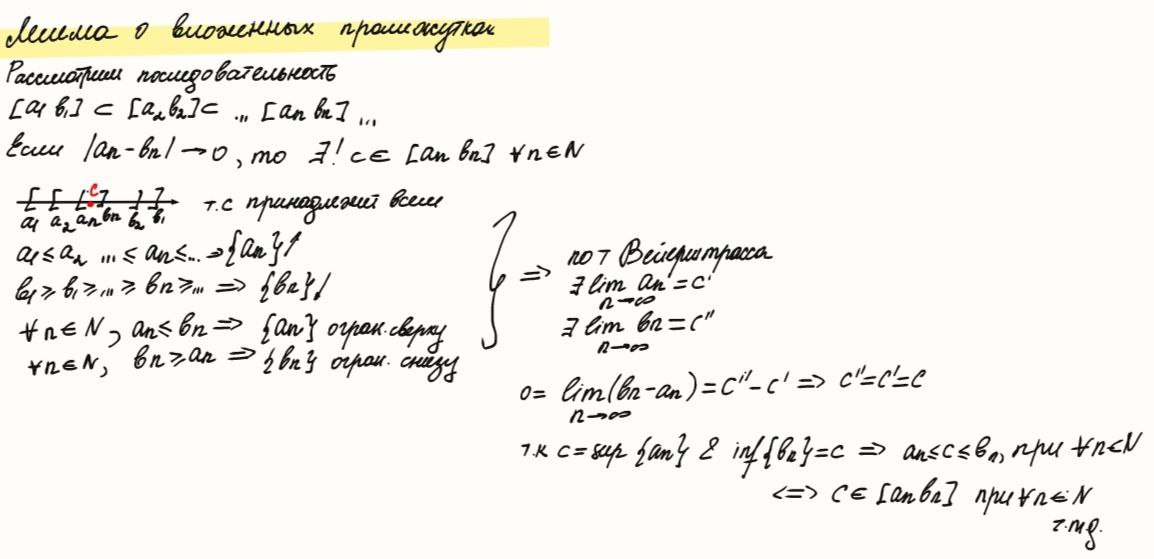 Лемма о вложенных промежутках
Рассмотрим последовательность
[a₁ b₁] ⊂ [a₂ b₂] ⊂ ... [an bn] ...
Если |an - bn| → 0, то ∃! c ∈ [an bn] ∀n ∈ N
[ [ [ c ] ] ]
a₁ a₂ an bn b₂ b₁
т.c принадлежит всем
a₁ ≤ a₂ ... ≤ an ≤ ... ⇒ {an}↑
b₁ ≥ b₁ ≥ ... ≥ bn ≥ ... ⇒ {bn}↓
∀n ∈ N, an ≤ bn ⇒ {an} огран. сверху
∀n ∈ N, bn ≥ an ⇒ {bn} огран. снизу
⇒ по т Вейерштрасса
∃ lim an = c'
n→∞
∃ lim bn = c''
n→∞
0 = lim (bn - an) = c'' - c' ⇒ c'' = c' = c
n→∞
т.к c = sup {an} & inf {bn} = c ⇒ an ≤ c ≤ bn, при ∀n ∈ N
<=> c ∈ [an bn] при ∀n ∈ N
ч.тд.